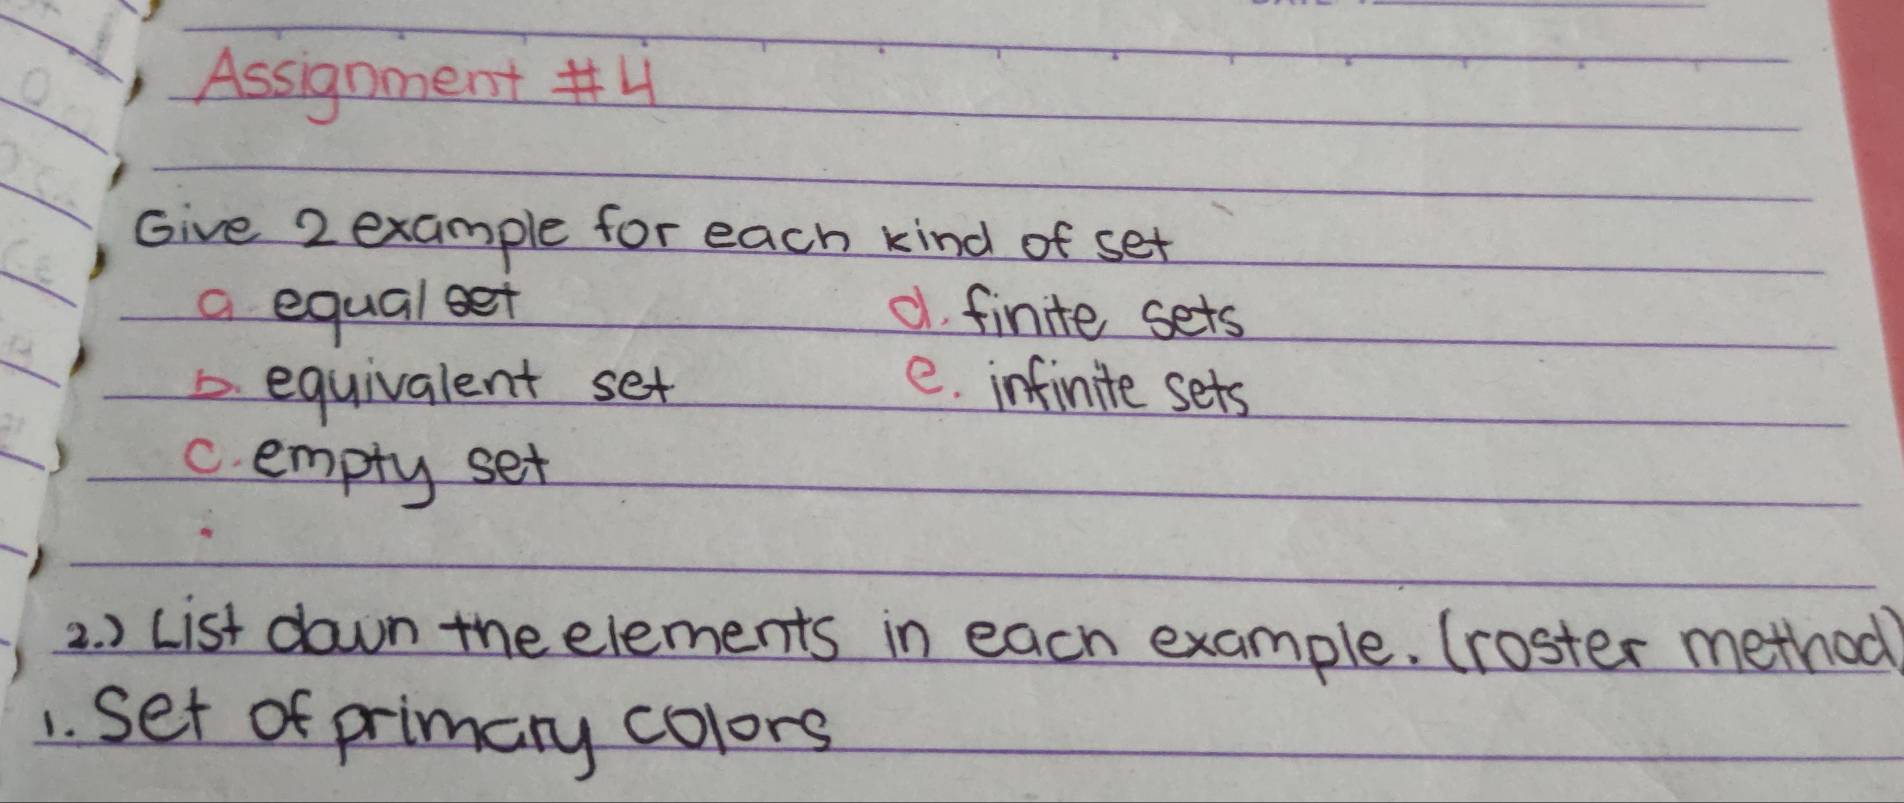 Assignment #4
Give 2 example for each kind of set
a. equal set
d. finite sets
b. equivalent set
e. infinite sets
c. empty set
2.) List down the elements in each example. (roster method)
1. Set of primary colors